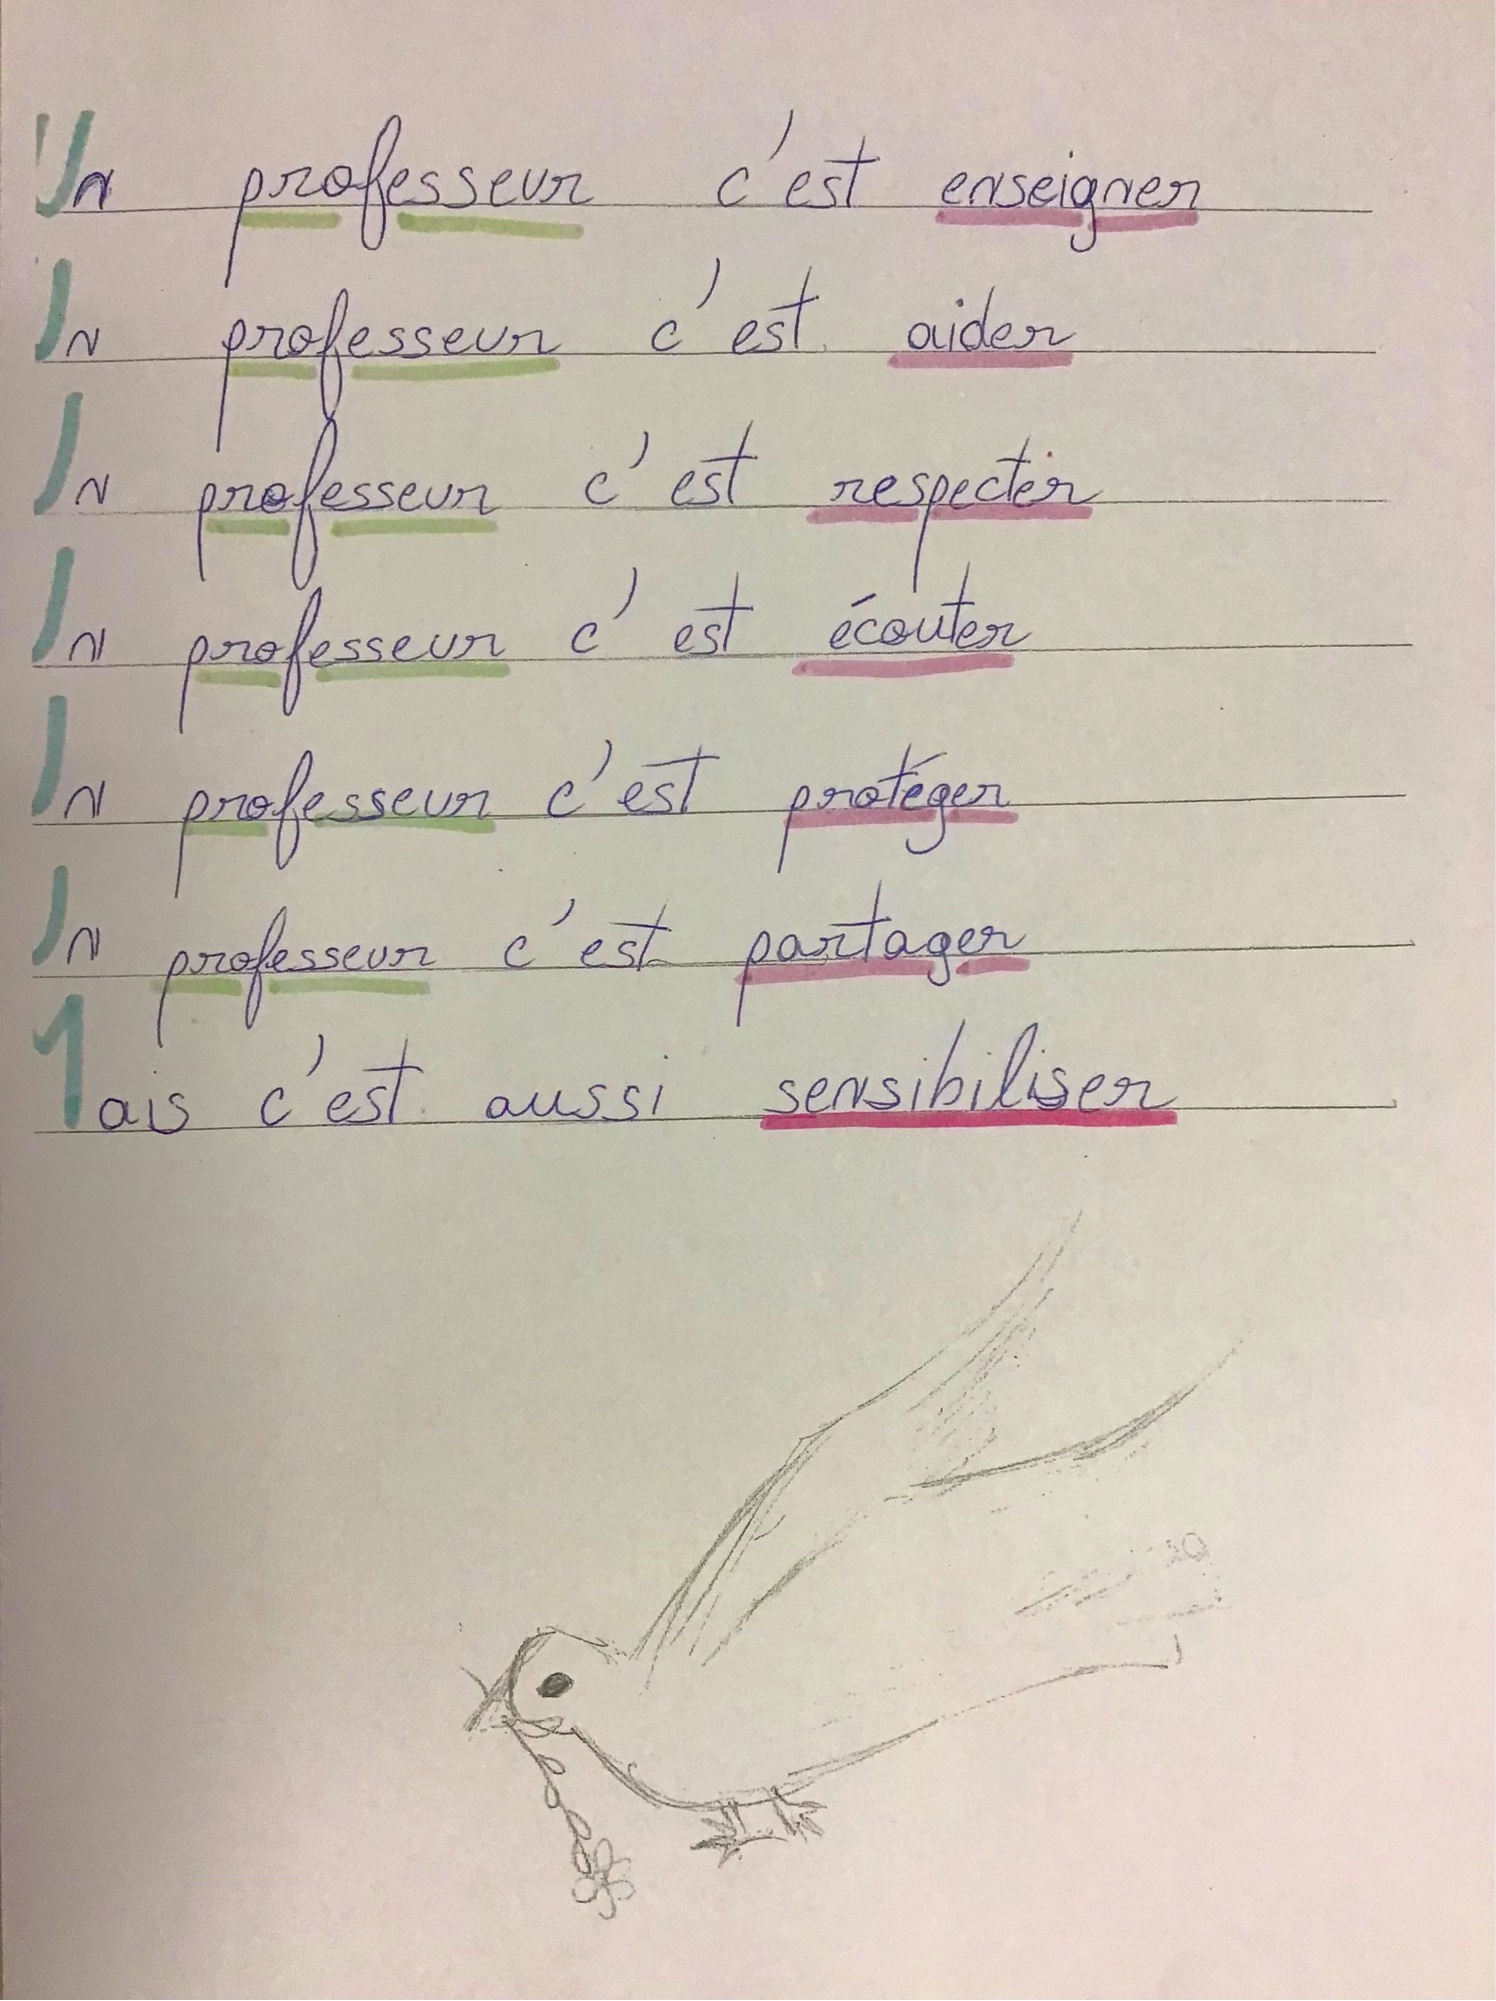 Un professeur c'est enseigner
Un professeur c'est aider
Un professeur c'est respecter
Un professeur c'est écouter
Un professeur c'est protéger
Un professeur c'est partager
Mais c'est aussi sensibiliser